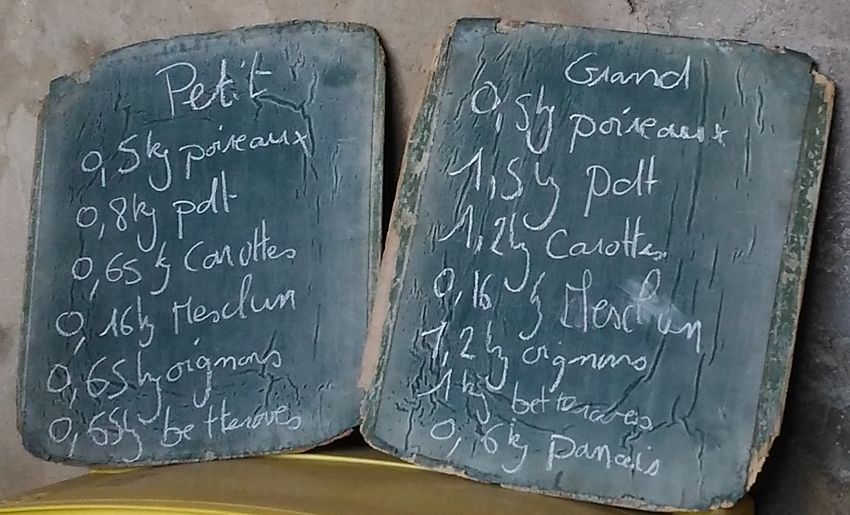 Petit
0,5kg poireaux
0,8kg pdt
0,65 kg Carottes
0,16kg Mesclun
0,65kg oignons
0,65kg betteraves
Grand
0,5kg poireaux
1,5kg pdt
1,2kg Carottes
0,16 kg Mesclun
1,2kg oignons
1kg betteraves
0,6kg panais